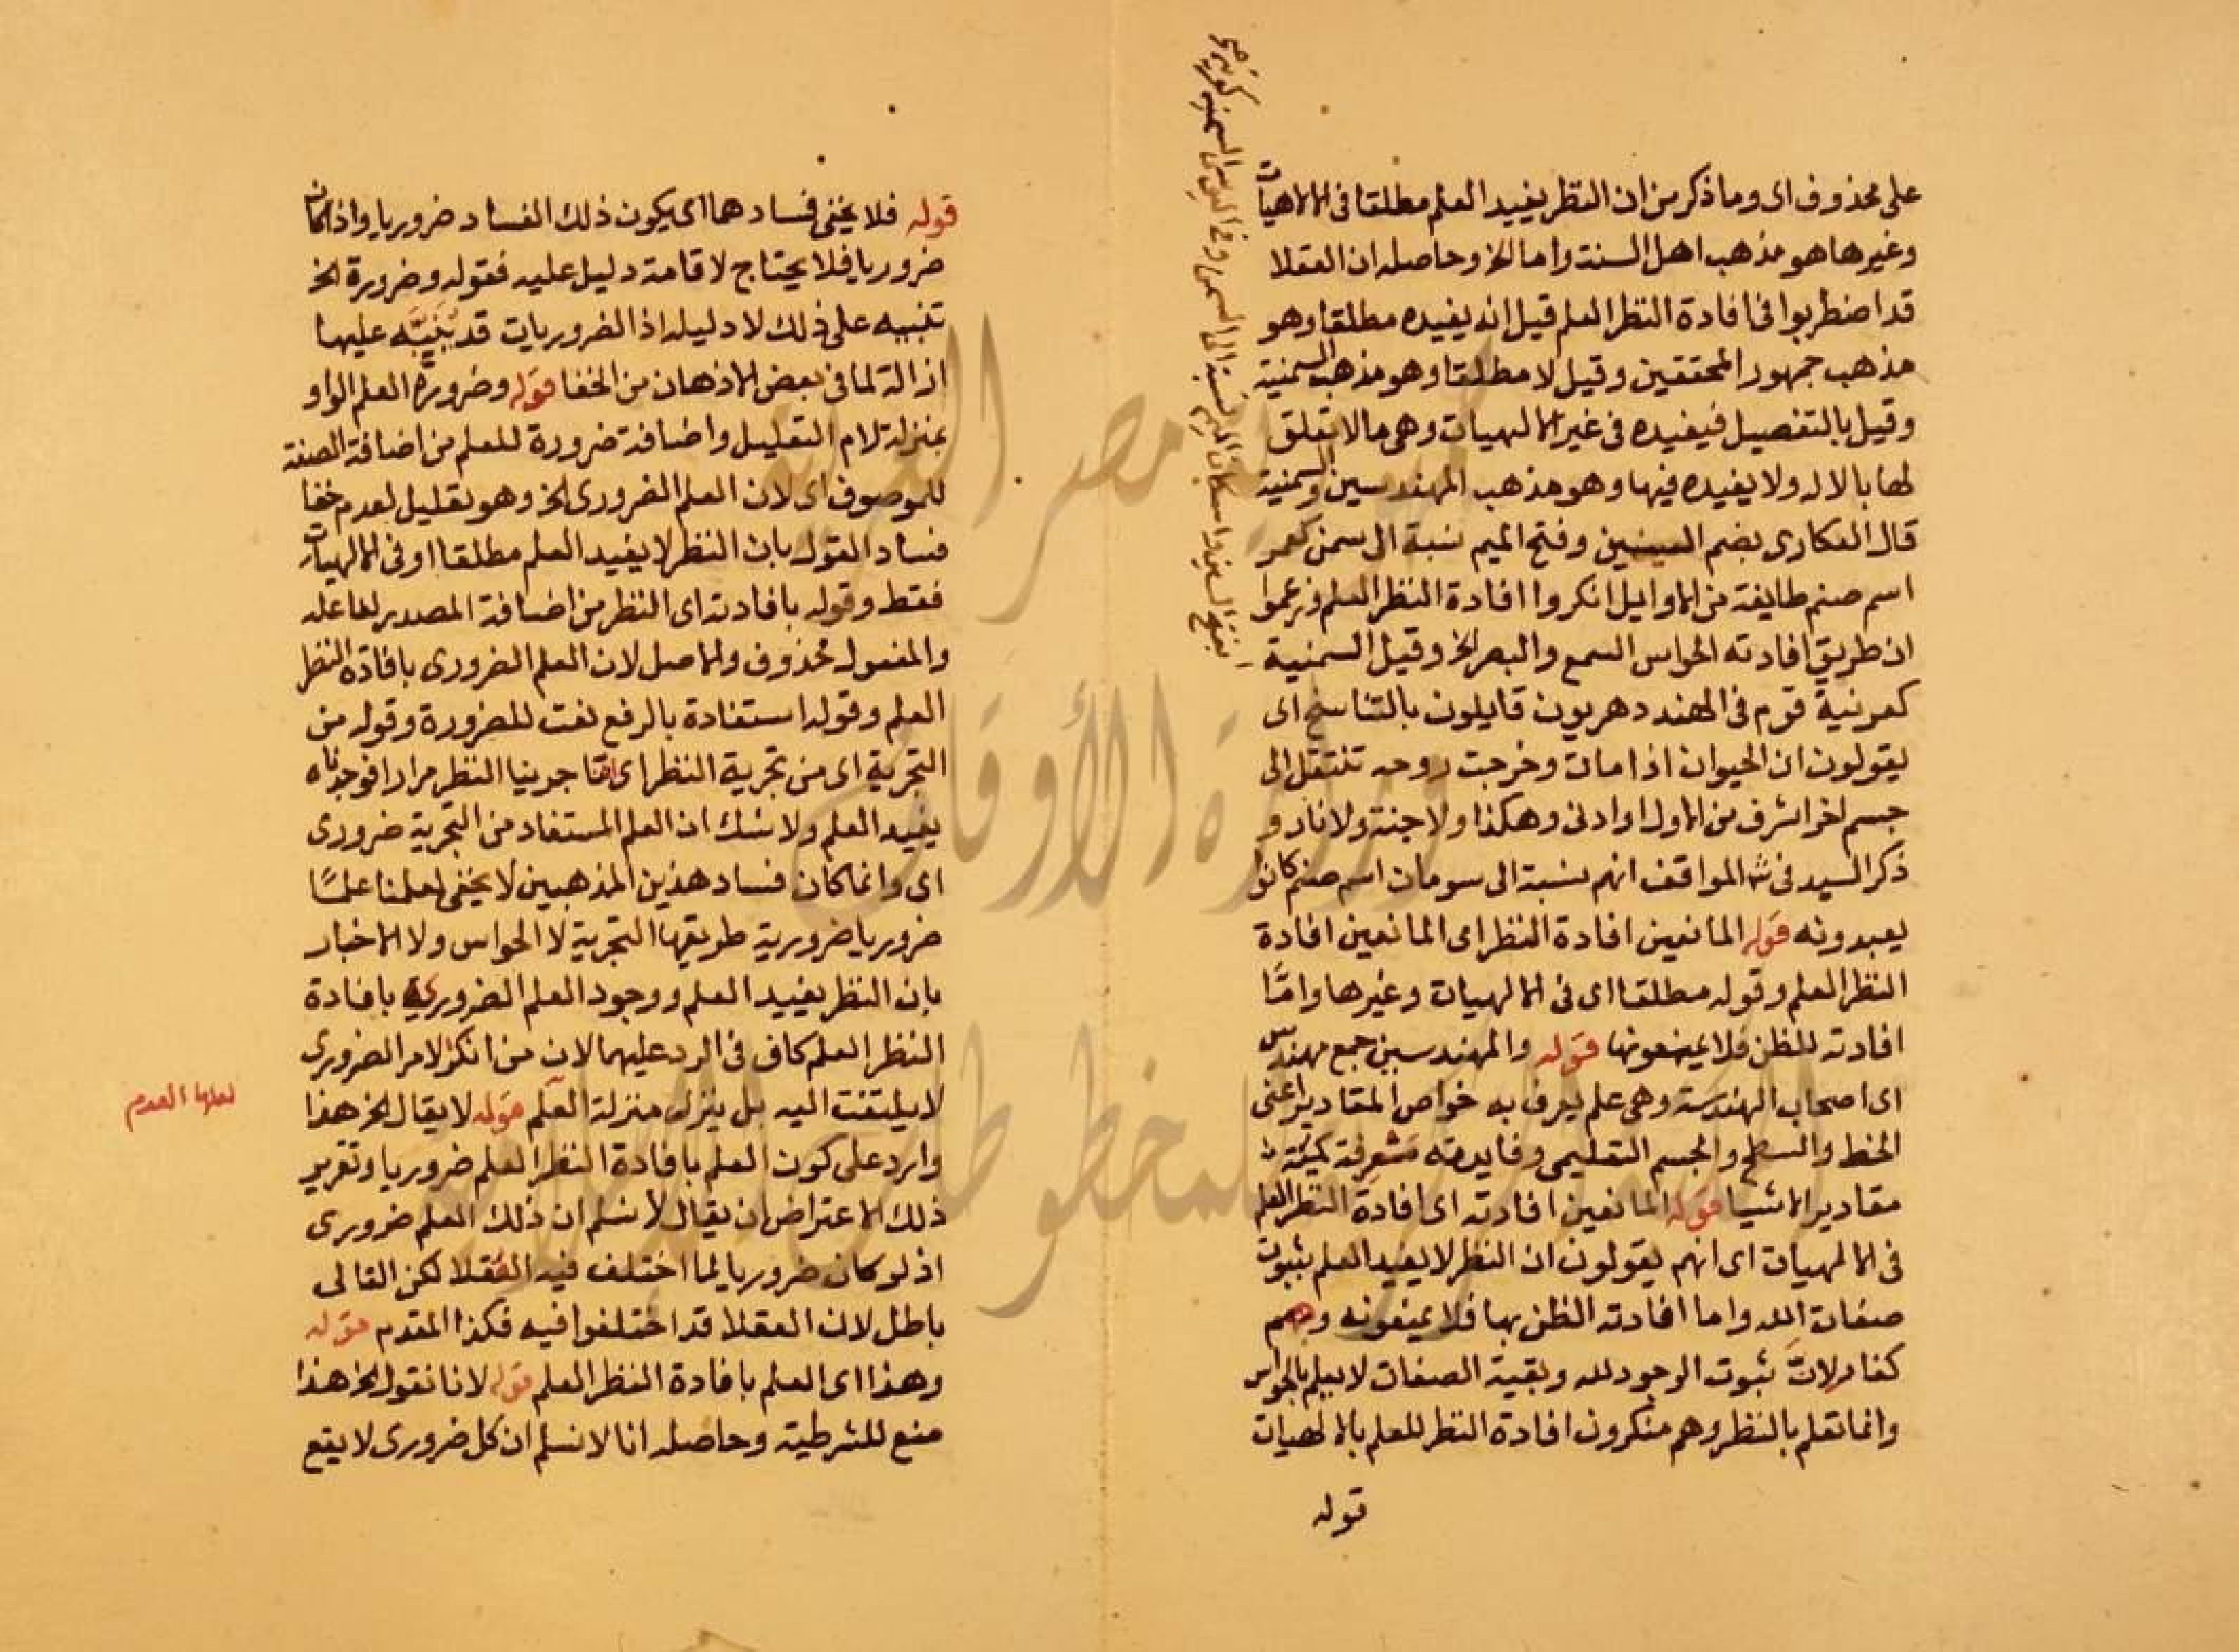 على محذوف اى وما ذكر من ان النظر يفيد العلم مطلقا فى الالاهيات
وغيرها هو مذهب اهل السنة واما الخ وحاصله ان العقلا
قد اضطربوا فى افادة النظر العلم قيل انه يفيده مطلقا وهو
مذهب جمهور المحققين وقيل لا مطلقا وهو مذهب السمنية
وقيل بالتفصيل فيفيده فى غير الالهيات وهى ما لا تعلق
لها بالاله ولا يفيده فيها وهو مذهب المهندسين والسمنية
قال العكارى بضم السين وفتح الميم نسبة الى سمن كعمر
اسم صنم طايفة من الاوايل انكروا افادة النظر العلم وزعموا
ان طريق افادته الحواس السمع والبصر الخ وقيل السمنية
كعرنية قوم فى الهند دهريون قايلون بالتناسخ اى
يقولون ان الحيوان اذا مات وخرجت روحه تنتقل الى
جسم اخر اشرف من الاول او ادنى وهكذا ولا جنة ولا نار و
ذكر السيد فى شـ المواقف انهم نسبة الى سومان اسم صنم كانوا
يعبدونه قوله المانعين افادة النظر اى المانعين افادة
النظر العلم وقوله مطلقا اى فى الالهيات وغيرها وامَّا
افادته للظن فلا يمنعونها قوله والمهندسين جمع مهندس
اى اصحاب الهندسة وهى علم يعرف به خواص المقادير اعنى
الخط والسطح والجسم التعليمى وفايدته معرفة كمية
مقادير الاشيا قوله المانعين افادته اى افادة النظر العلم
فى الالهيات اى انهم يقولون ان النظر لا يفيد العلم بثبوت
صفات الله واما افادته الظن بها فلا يمنعونه وهم
كفار لانَّ ثبوت الوجود لله وبقية الصفات لا يعلم بالحواس
وانما تعلم بالنظر وهم منكرون افادة النظر للعلم بالالهيات
قوله
قوله فلا يخفى فسادهما اى يكون ذلك الفساد ضروريا واذا كان
ضروريا فلا يحتاج لاقامة دليل عليه فقوله وضرورة الخ
تنبيه على ذلك لا دليله اذ الضروريات قد يُنَبَّه عليها
ازالة لما فى بعض الاذهان من الخفا قوله وضرورة العلم الواو
بمنزلة لام التعليل واضافة ضرورة للعلم من اضافة الصفة
للموصوف اى لان العلم الضرورى الخ وهو تعليل لعدم خفا
فساد القول بان النظر لا يفيد العلم مطلقا او فى الالهيات
فقط وقوله بافادته اى النظر من اضافة المصدر لفاعله
والمفعول محذوف والاصل لان العلم الضرورى بافادة النظر
العلم وقوله استفادة بالرفع نعت للضرورة وقوله من
التجربة اى من تجربة النظر اى انا جربنا النظر مرارا فوجدناه
يفيد العلم ولا شك ان العلم المستفاد من التجربة ضرورى
اى وانما كان فساد هذين المذهبين لا يخفى لعلمنا علمًا
ضروريا ضرورية طريقها التجربة لا الحواس ولا الاخبار
بان النظر يفيد العلم ووجود العلم الضرورى بافادة
النظر العلم كاف فى الرد عليهما لان من انكر الامر الضرورى
لا يلتفت اليه بل ينزله منزلة العلم قوله لا يقال الخ هذا
لعلها العدم
وارد على كون العلم بافادة النظر العلم ضروريا وتقرير
ذلك الاعتراض ان يقال لا نسلم ان ذلك العلم ضرورى
اذ لو كان ضروريا لما اختلف فيه العقلا لكن التالى
باطل لان العقلا قد اختلفوا فيه فكذا المقدم قوله
وهذا اى العلم بافادة النظر العلم قوله لانا نقول الخ هذا
منع للشرطية وحاصله انا لا نسلم ان كل ضرورى لا يقع